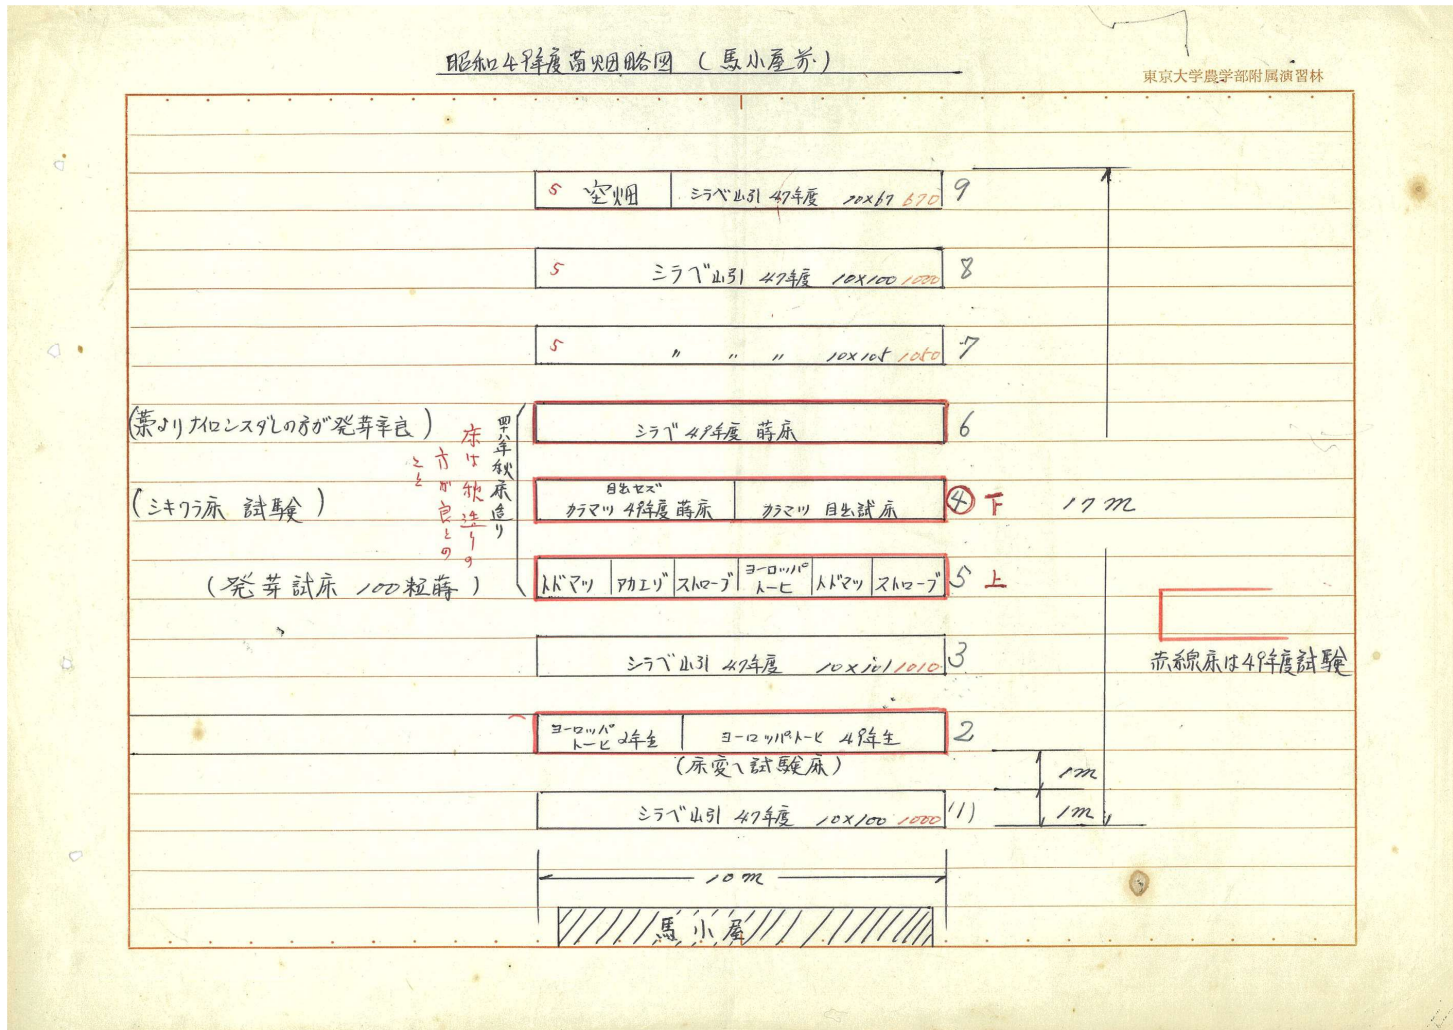 昭和49年度苗畑略図 (馬小屋前)
東京大学農学部附属演習林
5 空畑 シラベ山引 47年度 10×67 670 9
5 シラベ山引 47年度 10×100 1000 8
5 〃 〃 〃 10×105 1050 7
(藁よりナイロンスダレの方が発芽率良)
シラベ 49年度 蒔床 6
四八年秋床造り
床は秋造りの
方が良との
こと
(シキワラ床 試験)
目出セズ
カラマツ 49年度 蒔床 カラマツ 目出試床 ④ 下
17m
(発芽試床 100粒蒔)
トドマツ アカエゾ ストローブ ヨーロッパトーヒ トドマツ ストローブ 5 上
シラベ山引 47年度 10×101 1010 3
赤線床は49年度試験
ヨーロッパトーヒ 2年生 ヨーロッパトーヒ 49年生 2
(床変へ試験床)
1m
シラベ山引 47年度 10×100 1000 (1)
1m
10m
馬小屋